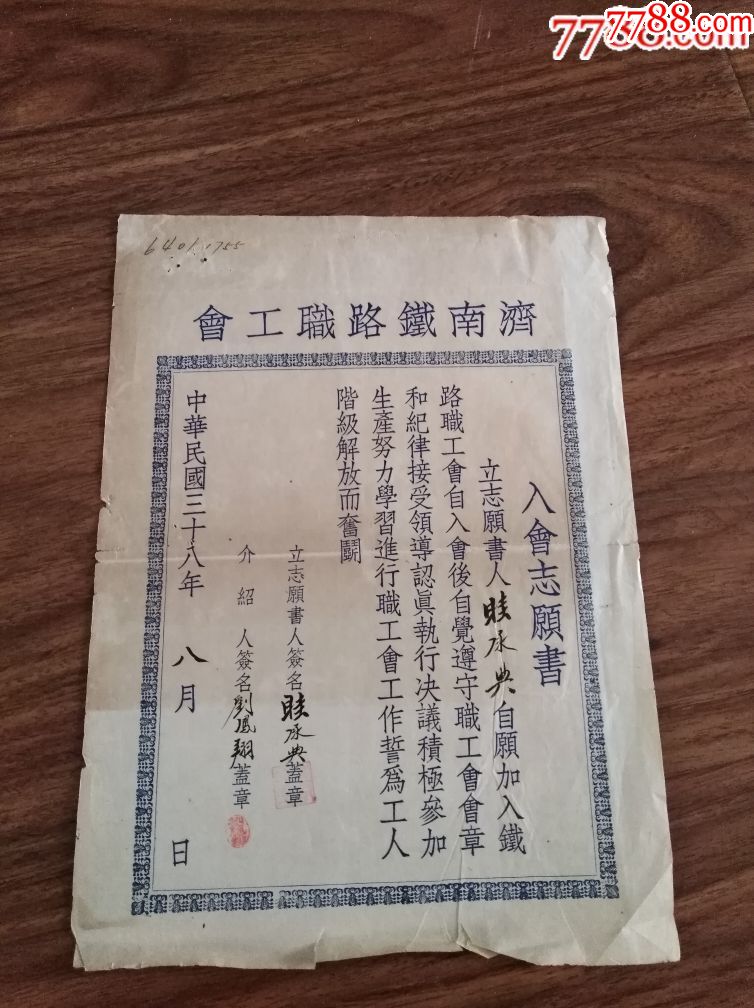 7788.com
7788.com
6401.1755
濟南鐵路職工會
入會志願書
立志願書人眭承典自願加入鐵
路職工會自入會後自覺遵守職工會會章
和紀律接受領導認眞執行決議積極參加
生產努力學習進行職工會工作誓爲工人
階級解放而奮鬪
立志願書人簽名眭承典蓋章
介紹人簽名劉鳳翔蓋章
中華民國三十八年八月日